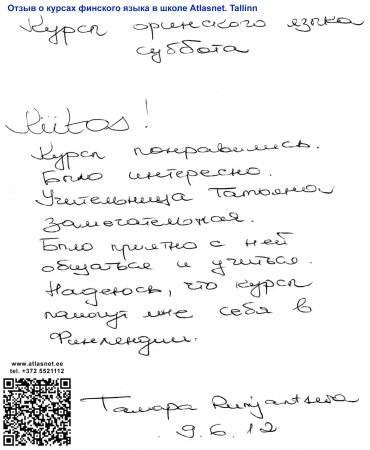 Отзыв о курсах финского языка в школе Atlasnet. Tallinn
Курсы финского языка
суббота
Kiitos!
Курсы понравились.
Было интересно.
Учительница Татьяна
замечательная.
Было приятно с ней
общаться и учиться.
Надеюсь, что курсы
помогут мне себя в
Финляндии.
www.atlasnet.ee
tel. +372 5521112
Тамара Rumjantseva
9.6.12